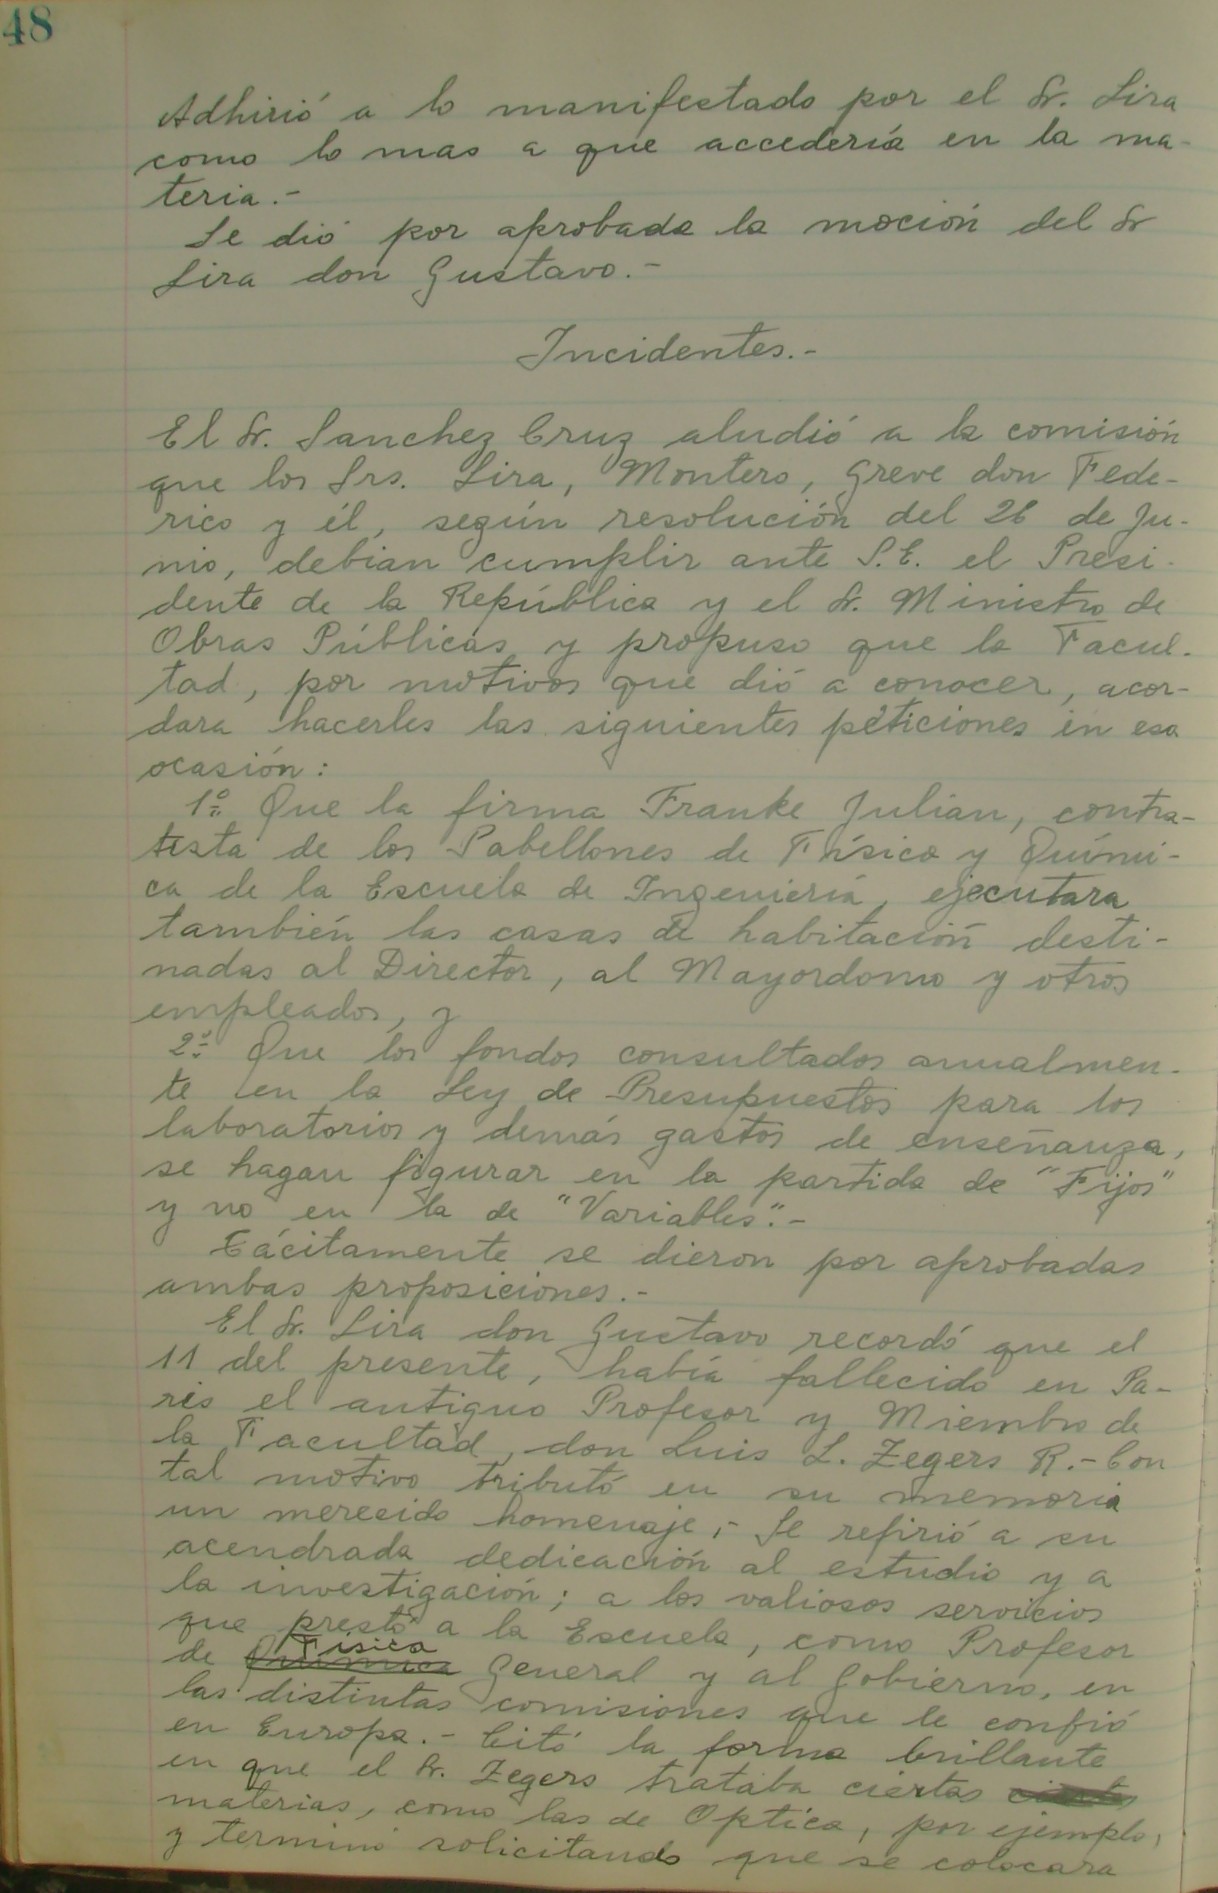 48
Adhirió a lo manifestado por el Sr. Lira
como lo mas a que accedería en la ma-
teria.-
Se dió por aprobada la moción del Sr
Lira don Gustavo.-
Incidentes.-
El Sr. Sanchez Cruz aludió a la comisión
que los Srs. Lira, Montero, Greve don Fede-
rico y él, según resolución del 26 de Ju-
nio, debian cumplir ante S.E. el Presi-
dente de la República y el Sr. Ministro de
Obras Públicas y propuso que la Facul-
tad, por motivos que dió a conocer, acor-
dara hacerles las siguientes peticiones en esa
ocasión:
1º Que la firma Franke Julian, contra-
tista de los Pabellones de Física y Quími-
ca de la Escuela de Ingeniería, ejecutara
también las casas de habitación desti-
nadas al Director, al Mayordomo y otros
empleados, y
2º Que los fondos consultados anualmen-
te en la Ley de Presupuestos para los
laboratorios y demás gastos de enseñanza,
se hagan figurar en la partida de "Fijos"
y no en la de "Variables".-
Tácitamente se dieron por aprobadas
ambas proposiciones.-
El Sr. Lira don Gustavo recordó que el
11 del presente, había fallecido en Pa-
ris el antiguo Profesor y Miembro de
la Facultad, don Luis L. Zegers R.- Con
tal motivo tributó en su memoria
un merecido homenaje;- Se refirió a su
acendrada dedicación al estudio y a
la investigación; a los valiosos servicios
que prestó a la Escuela, como Profesor
Física
de Química General y al Gobierno, en
las distintas comisiones que le confió
en Europa.- Citó la forma brillante
en que el Sr. Zegers trataba ciertas ciertas
materias, como las de Optica, por ejemplo,
y terminó solicitando que se colocara